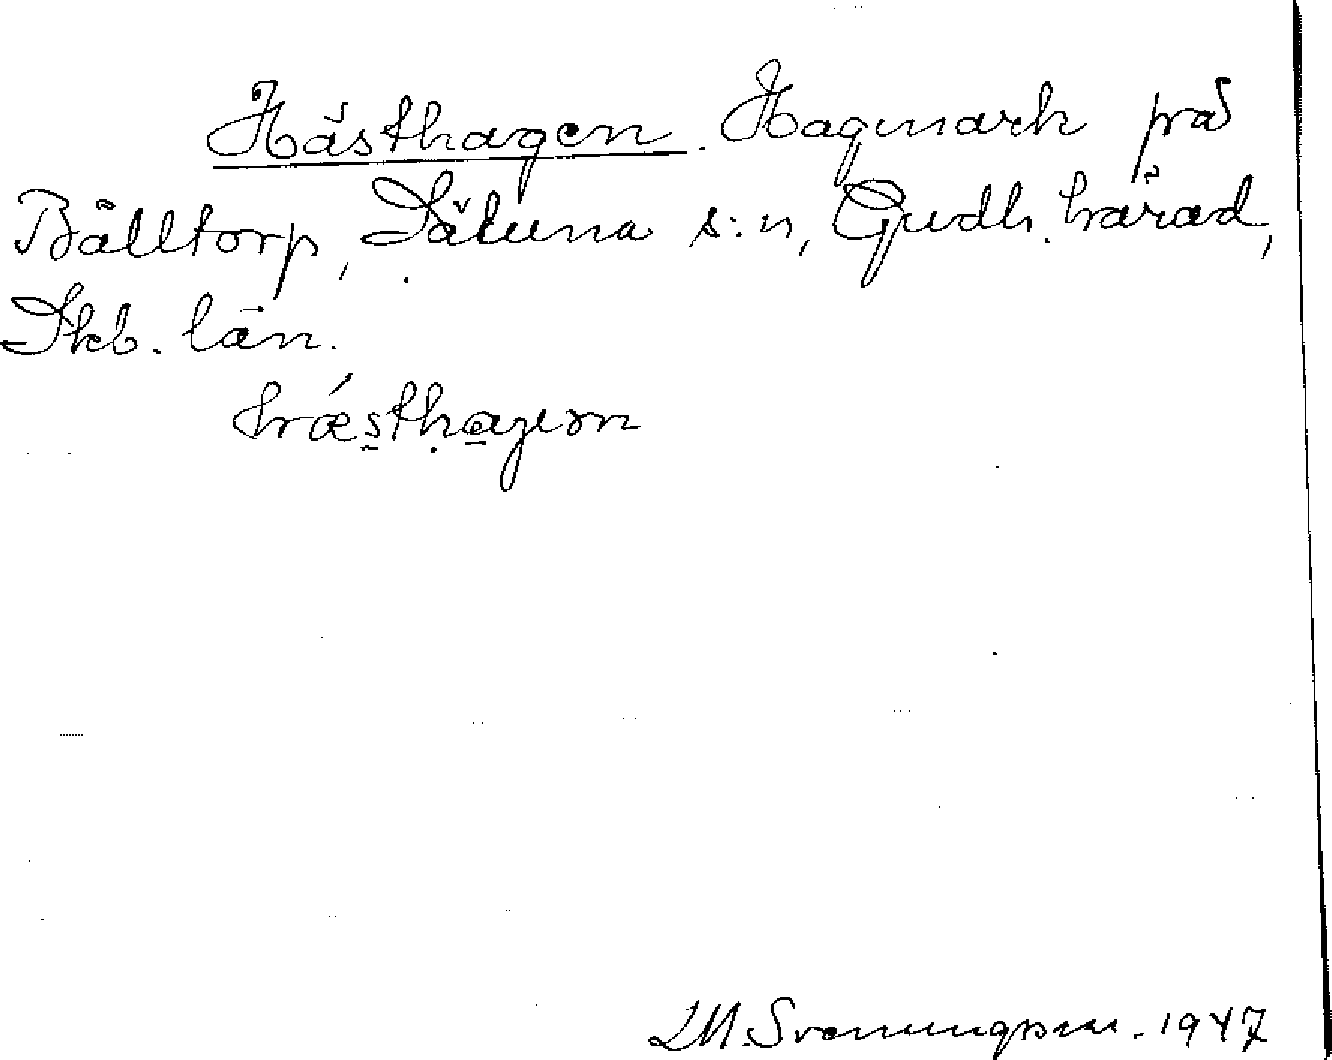 Hästhagen. Hagmark på
Bälltorp, Sätuna s:n, Gudh. härad,
Skb. län.
hǽsthagen
L.M. Svenungsson. 1947